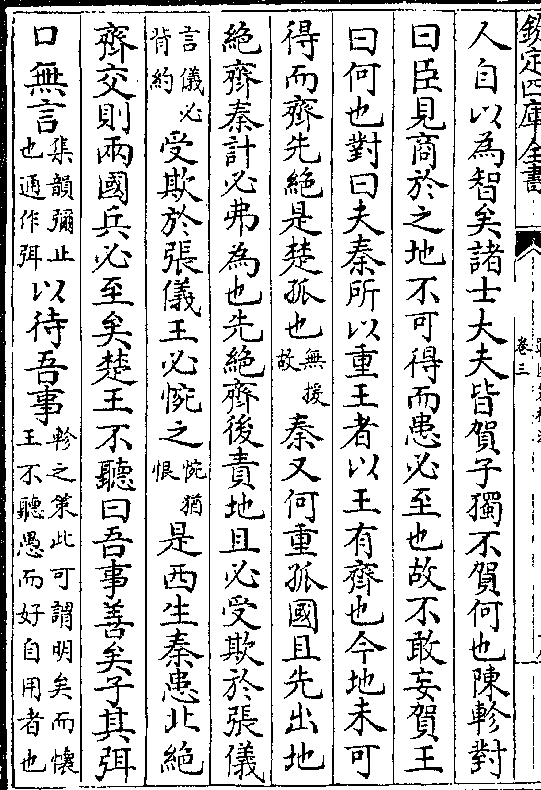 欽定四庫全書
卷三
人自以為智矣諸士大夫皆賀子獨不賀何也陳軫對
曰臣見商於之地不可得而患必至也故不敢妄賀王
曰何也對曰夫秦所以重王者以王有齊也今地未可
得而齊先絶是楚孤也無援故秦又何重孤國且先出地
絶齊秦計必弗為也先絶齊後責地且必受欺於張儀
言儀必背約受欺於張儀王必惋之惋猶恨是西生秦患北絶
齊交則兩國兵必至矣楚王不聽曰吾事善矣子其弭
口無言集韻彌止也通作弭以待吾事軫之策此可謂明矣而懷王不聽愚而好自用者也